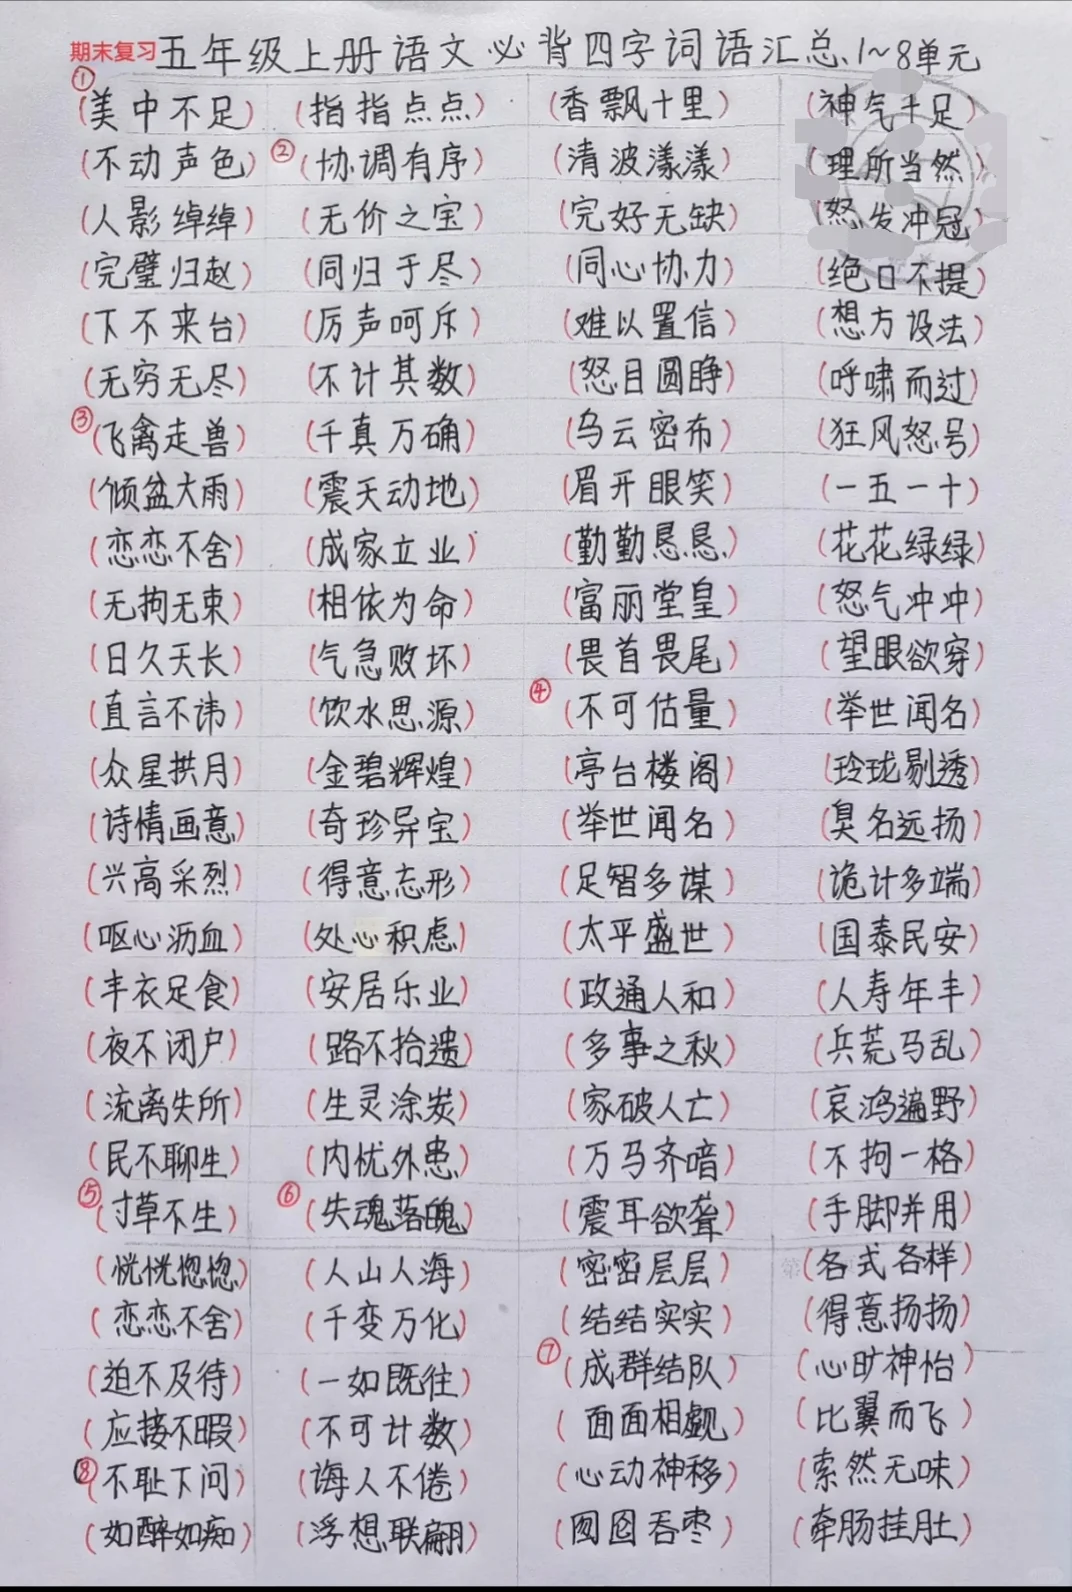 期末复习 五年级上册语文必背四字词语汇总1~8单元
① (美中不足) (指指点点) (香飘十里) (神气十足)
(不动声色) ② (协调有序) (清波漾漾) (理所当然)
(人影绰绰) (无价之宝) (完好无缺) (怒发冲冠)
(完璧归赵) (同归于尽) (同心协力) (绝口不提)
(下不来台) (厉声呵斥) (难以置信) (想方设法)
(无穷无尽) (不计其数) (怒目圆睁) (呼啸而过)
③ (飞禽走兽) (千真万确) (乌云密布) (狂风怒号)
(倾盆大雨) (震天动地) (眉开眼笑) (一五一十)
(恋恋不舍) (成家立业) (勤勤恳恳) (花花绿绿)
(无拘无束) (相依为命) (富丽堂皇) (怒气冲冲)
(日久天长) (气急败坏) (畏首畏尾) (望眼欲穿)
(直言不讳) (饮水思源) ④ (不可估量) (举世闻名)
(众星拱月) (金碧辉煌) (亭台楼阁) (玲珑剔透)
(诗情画意) (奇珍异宝) (举世闻名) (臭名远扬)
(兴高采烈) (得意忘形) (足智多谋) (诡计多端)
(呕心沥血) (处心积虑) (太平盛世) (国泰民安)
(丰衣足食) (安居乐业) (政通人和) (人寿年丰)
(夜不闭户) (路不拾遗) (多事之秋) (兵荒马乱)
(流离失所) (生灵涂炭) (家破人亡) (哀鸿遍野)
(民不聊生) (内忧外患) (万马齐喑) (不拘一格)
⑤ (寸草不生) ⑥ (失魂落魄) (震耳欲聋) (手脚并用)
(恍恍惚惚) (人山人海) (密密层层) (各式各样)
(恋恋不舍) (千变万化) (结结实实) (得意扬扬)
(迫不及待) (一如既往) ⑦ (成群结队) (心旷神怡)
(应接不暇) (不可计数) (面面相觑) (比翼而飞)
⑧ (不耻下问) (诲人不倦) (心动神移) (索然无味)
(如醉如痴) (浮想联翩) (囫囵吞枣) (牵肠挂肚)